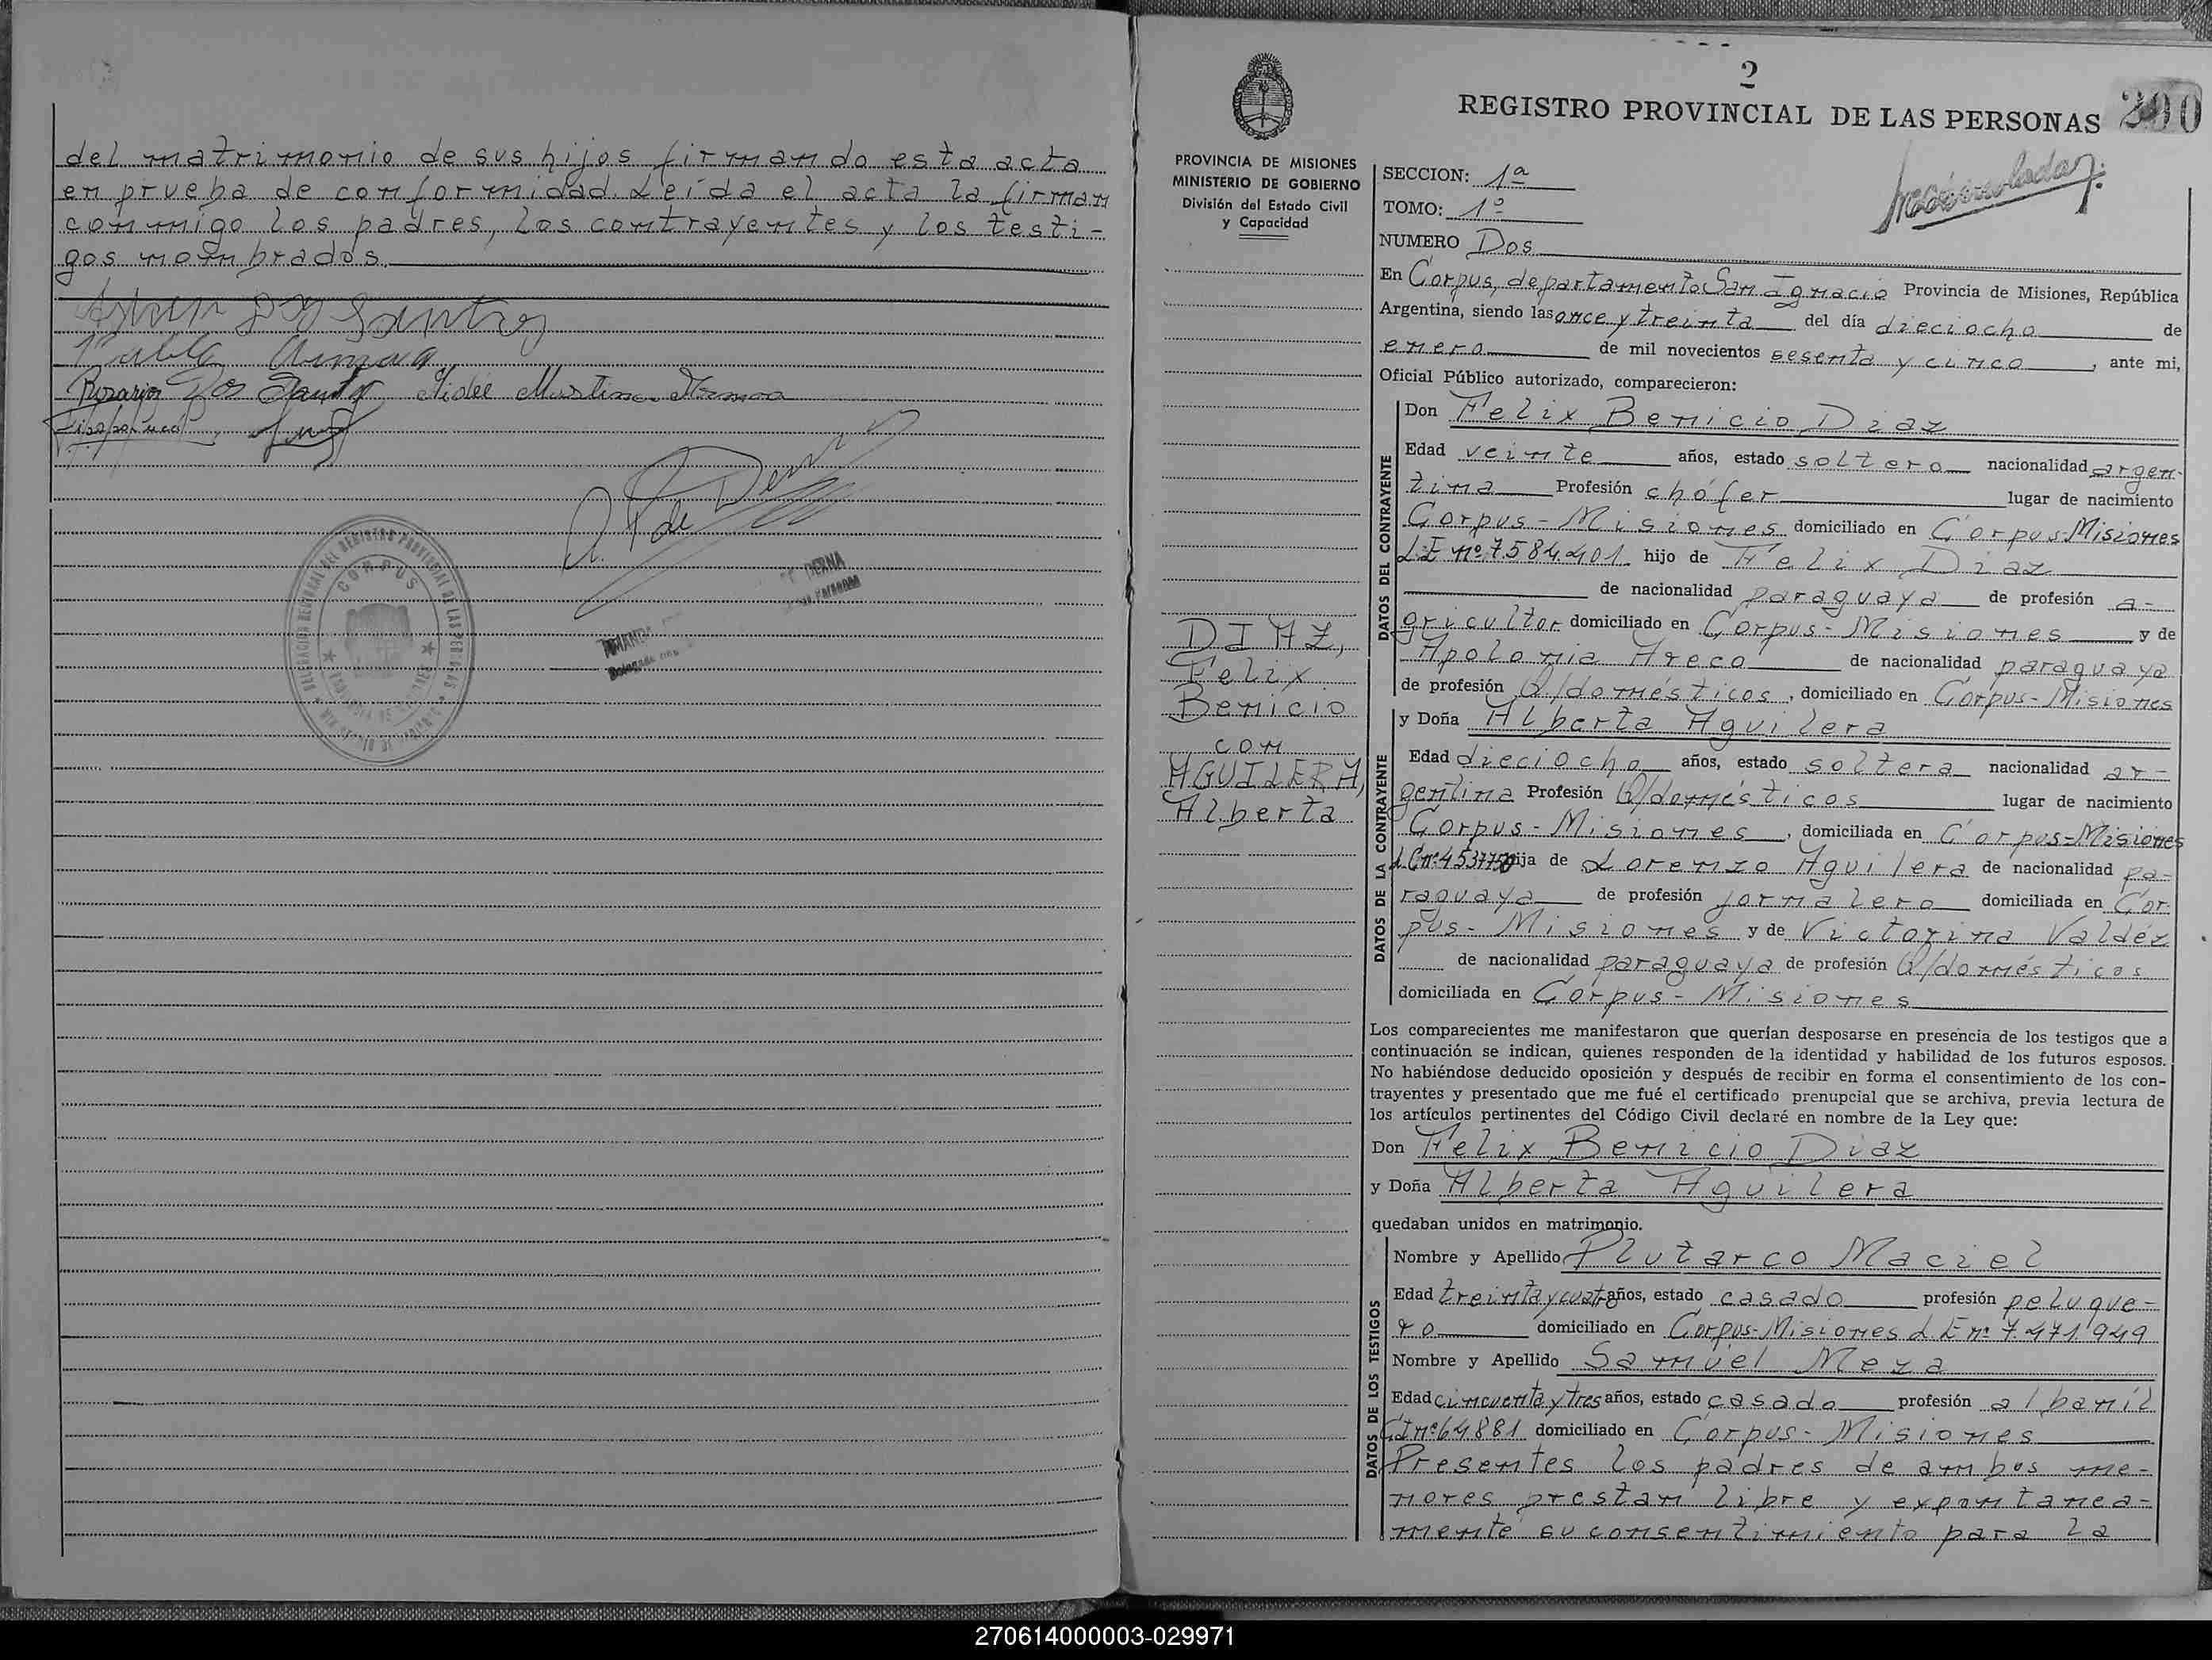 del matrimonio de sus hijos firmando esta acta
en prueba de conformidad. Leída el acta la firman
conmigo los padres, los contrayentes y los testi-
gos nombrados.
Rosario Dos Santos
CORPUS
2
REGISTRO PROVINCIAL DE LAS PERSONAS
PROVINCIA DE MISIONES
MINISTERIO DE GOBIERNO
División del Estado Civil
y Capacidad
SECCION: 1ª
TOMO: 1º
NUMERO Dos
En Corpus, departamento San Ignacio Provincia de Misiones, República
Argentina, siendo las once y treinta del día dieciocho de
enero de mil novecientos sesenta y cinco, ante mi,
Oficial Público autorizado, comparecieron:
DATOS DEL CONTRAYENTE
Don Felix Benicio Diaz
Edad veinte años, estado soltero nacionalidad argen-
tina Profesión chófer lugar de nacimiento
Corpus - Misiones domiciliado en Corpus-Misiones
L.E nº 7584401 hijo de Felix Diaz
de nacionalidad paraguaya de profesión a-
gricultor domiciliado en Corpus - Misiones y de
Apolonia Areco de nacionalidad paraguaya
de profesión Q/domésticos, domiciliado en Corpus-Misiones
DIAZ,
Felix
Benicio
con
AGUILERA,
Alberta
DATOS DE LA CONTRAYENTE
y Doña Alberta Aguilera
Edad dieciocho años, estado soltera nacionalidad ar-
gentina Profesión Q/domésticos lugar de nacimiento
Corpus - Misiones, domiciliada en Corpus-Misiones
L.C nº 4537750 hija de Lorenzo Aguilera de nacionalidad pa-
raguaya de profesión jornalero domiciliada en Cor-
pus - Misiones y de Victorina Valdéz
de nacionalidad paraguaya de profesión Q/domésticos
domiciliada en Corpus - Misiones
Los comparecientes me manifestaron que querían desposarse en presencia de los testigos que a
continuación se indican, quienes responden de la identidad y habilidad de los futuros esposos.
No habiéndose deducido oposición y después de recibir en forma el consentimiento de los con-
trayentes y presentado que me fué el certificado prenupcial que se archiva, previa lectura de
los artículos pertinentes del Código Civil declaré en nombre de la Ley que:
Don Felix Benicio Diaz
y Doña Alberta Aguilera
quedaban unidos en matrimonio.
DATOS DE LOS TESTIGOS
Nombre y Apellido Plutarco Maciel
Edad treinta y cuatro años, estado casado profesión peluque-
ro domiciliado en Corpus-Misiones L.E nº 7.471.949
Nombre y Apellido Samuel Meza
Edad cincuenta y tres años, estado casado profesión albañil
C.I nº 64881 domiciliado en Corpus - Misiones
Presentes los padres de ambos me-
nores prestan libre y expontanea-
mente su consentimiento para la
270614000003-029971